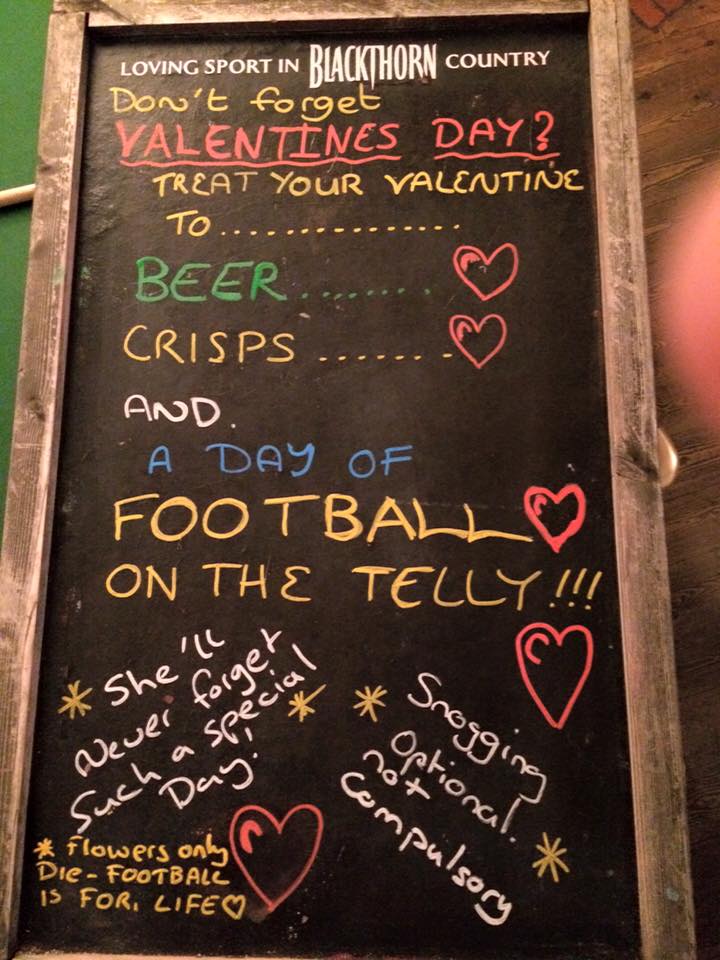 LOVING SPORT IN BLACKTHORN COUNTRY
Don't forget
VALENTINES DAY?
TREAT YOUR VALENTINE
TO...............
BEER........
CRISPS .......
AND.
A DAY OF
FOOTBALL
ON THE TELLY!!!
* She'll
Never forget
Such a special *
Day!
* Snogging
Optional.
not
Compulsory *
* Flowers only
DIE - FOOTBALL
IS FOR, LIFE♡